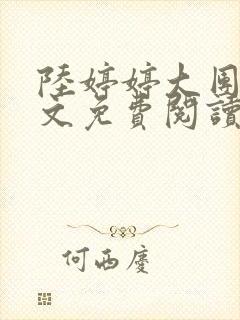 陸婷婷大圍
文免費閱讀
何西慶